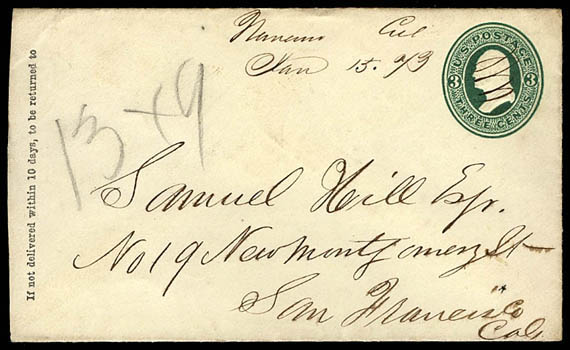 Cal
Jan 15. 73
U.S. POSTAGE
3 3
THREE CENTS
If not delivered within 10 days, to be returned to
Samuel Hill Esqr.
No 19 New Montgomery St
San Francisco
Cal